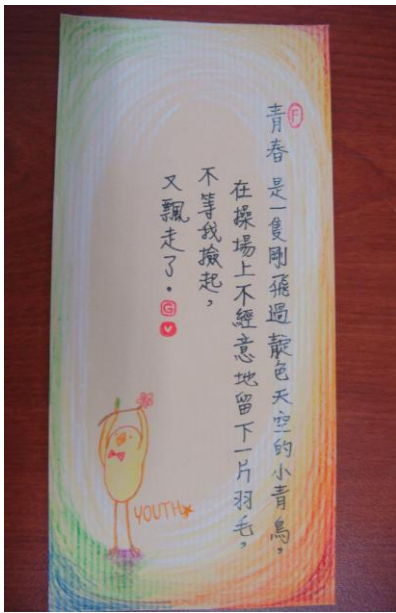 F
青春 是一隻剛飛過靛色天空的小青鳥，
在操場上不經意地留下一片羽毛，
不等我撿起，
又飄走了。
G
YOUTH